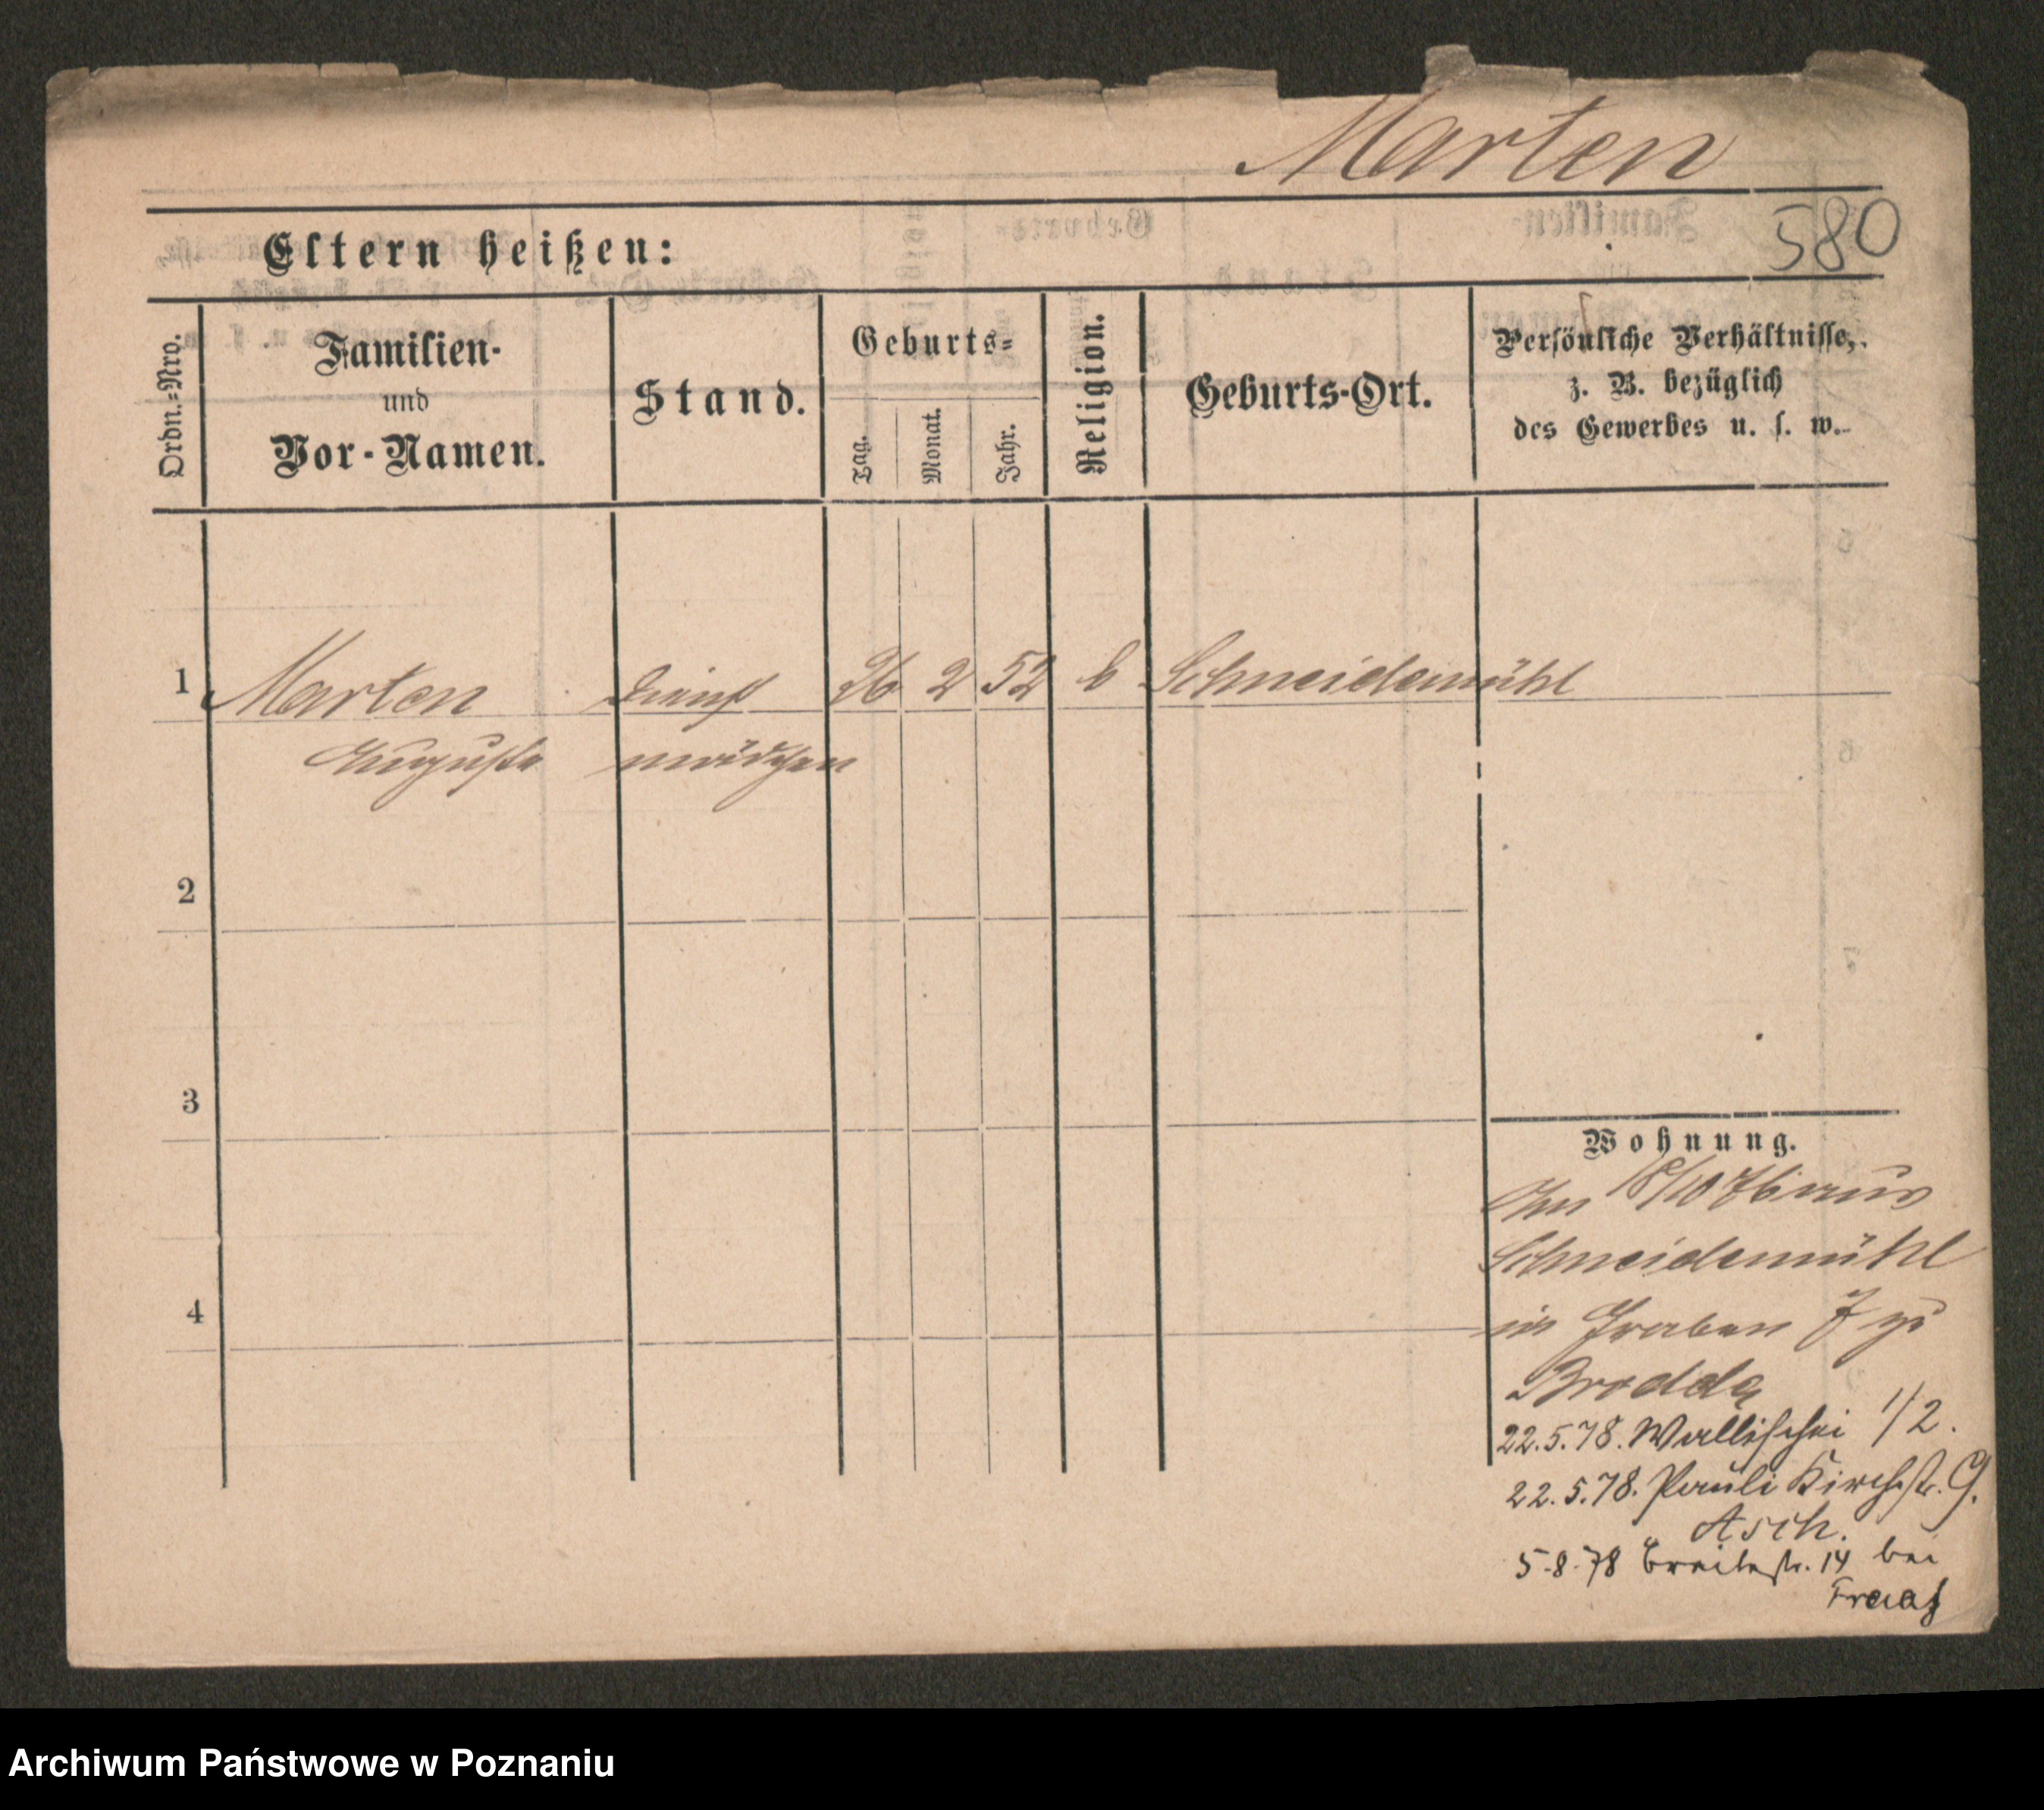 Marten
580
Eltern heißen:
Ordn.-Nro.
Familien-
und
Vor-Namen.
Stand.
Geburts-
Tag.
Monat.
Jahr.
Religion.
Geburts-Ort.
Persönliche Verhältnisse,
z. B. bezüglich
des Gewerbes u. s. w.
1 Marten Dienst 26 2 52 Schneidemühl
Auguste mädchen
2
3
4
Wohnung.
18/10 76 aus
Schneidemühl
in Graben 7 zu
Brodda
22.5.78. Wallischei 1/2.
22.5.78. Pauli Kirchstr. 9.
Asch.
5.8.78 Breitestr. 14 bei
Archiwum Państwowe w Poznaniu